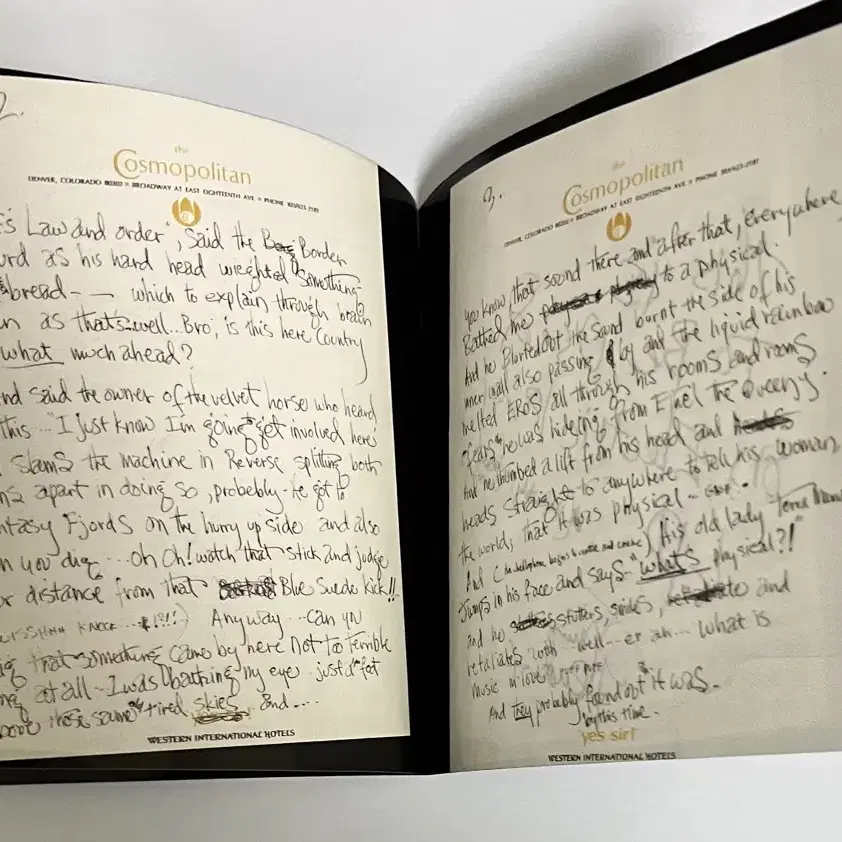 2.
the
Cosmopolitan
DENVER, COLORADO 80202 • BROADWAY AT EAST EIGHTEENTH AVE • PHONE 303/623-2181
Law and order", said the Border
as his hard head wieghted "something
bread-- which to explain through brain
as that's well.. Bro, is this here Country
what much ahead?
said the owner of the velvet horse who heard
this "I just know I'm going get involved here
Slams the machine in Reverse splitting both
apart in doing so, probebly he got to
Fjords on the hurry up side and also
you dig... oh Oh! watch that stick and judge
distance from that Blue Suede kick!!
KNOCK Anyway... Can yn
that something came by here not to terrible
at all - I was bathing my eye just a fat
these same tired skies and....
WESTERN INTERNATIONAL HOTELS
3.
the
Cosmopolitan
DENVER, COLORADO 80202 • BROADWAY AT EAST EIGHTEENTH AVE • PHONE 303/623-2181
you know, that sound there and after that, everywhere
Bathed me to a physical.
And he Blurted out the sand burnt the side of his
inner wall also passing by and the liquid rainbow
melted EROS all through his rooms and rooms
"fears" he was hideing from
And he thumbed a lift from his head and heads
heads straight to anywhere to tell his woman,
the world; that it was physical --
And His old lady
Jumps in his face and says "what's physical?!"
and he stutters, smiles, and
retaliates with "well--er ah... what is
music in love
And they probably found out it was.
by this time.
yes sir!
WESTERN INTERNATIONAL HOTELS